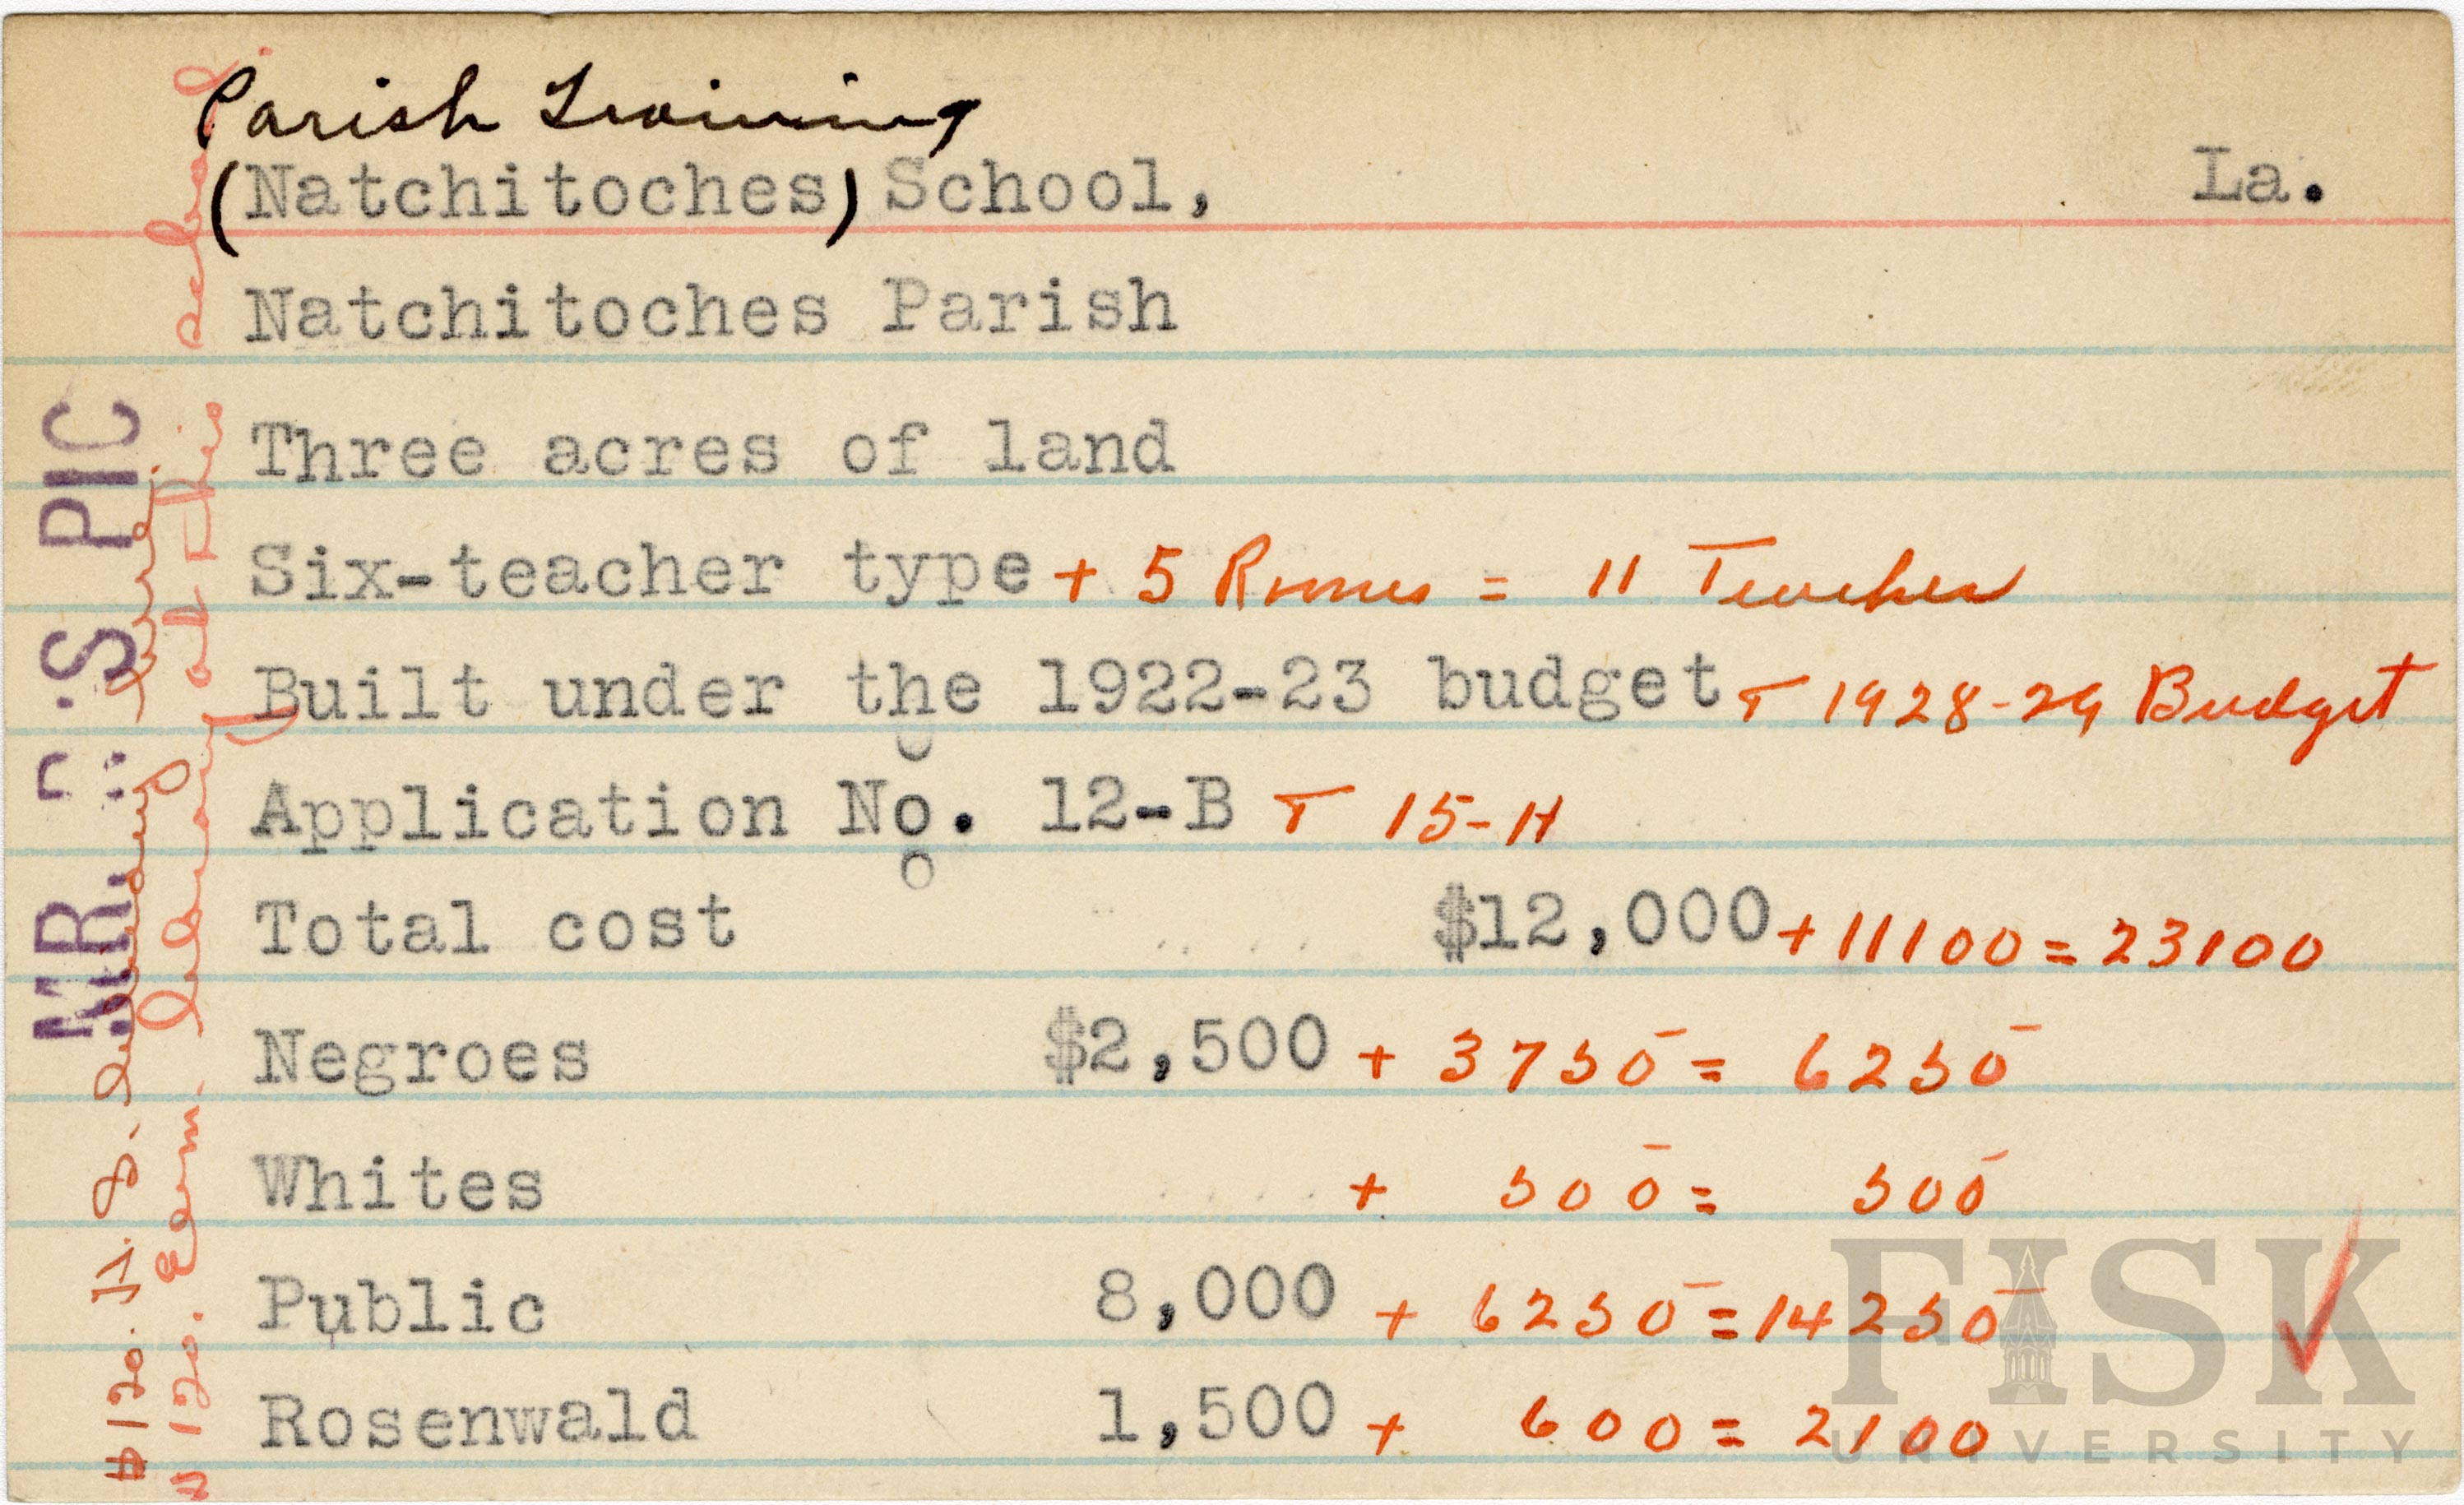 Parish Training
(Natchitoches) School, La.
Natchitoches Parish
Three acres of land
Six-teacher type + 5 Rooms = 11 Teacher
Built under the 1922-23 budget + 1928-29 Budget
Application No. 12-B + 15-H
Total cost $12,000 + 11100 = 23100
Negroes $2,500 + 3750 = 6250
Whites + 500 = 500
Public 8,000 + 6250 = 14250
Rosenwald 1,500 + 600 = 2100
MR. S PIC
#120. H. S. library
#120. Elem. library at this school
FISK
UNIVERSITY